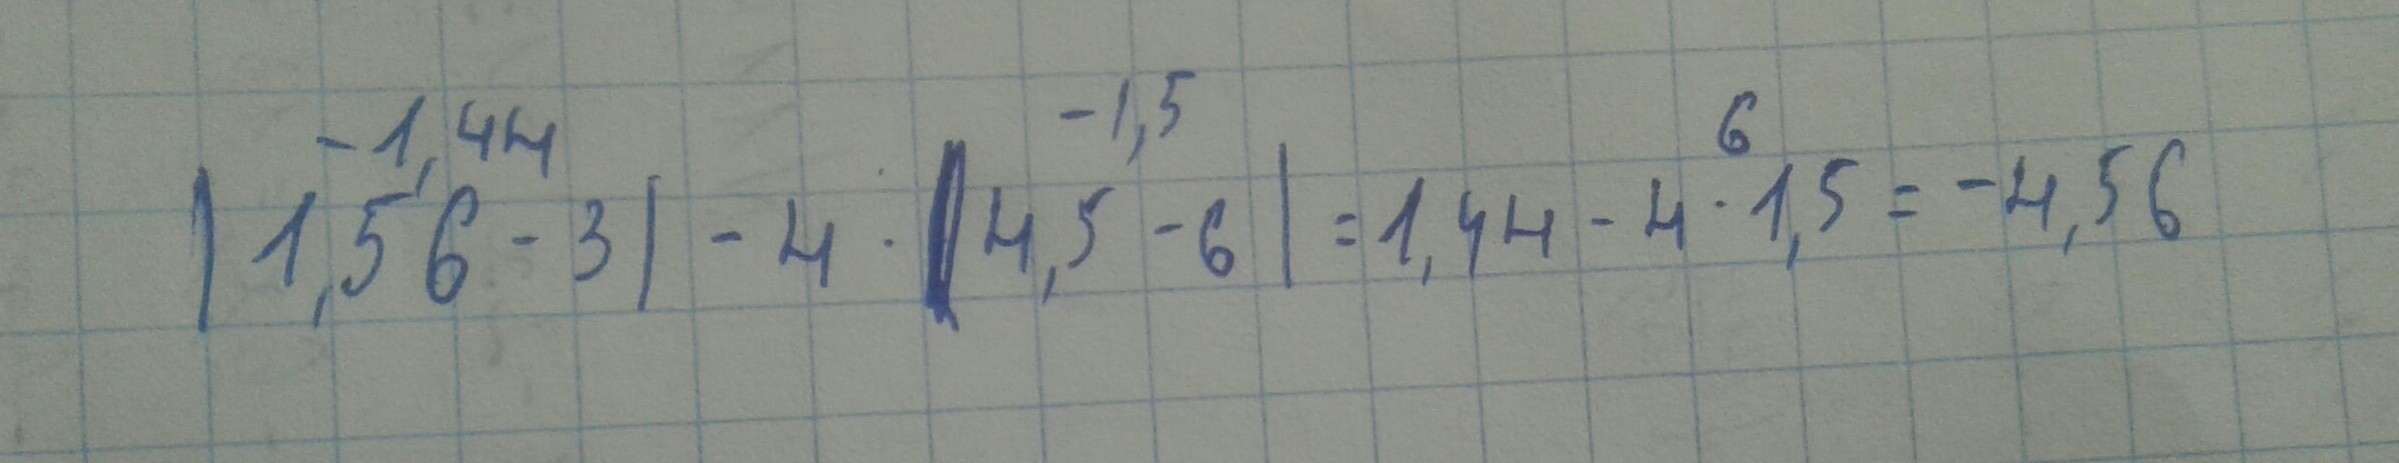 -1,44 -1,5 6
|1,56-3|-4·|4,5-6|=1,44-4·1,5=-4,56